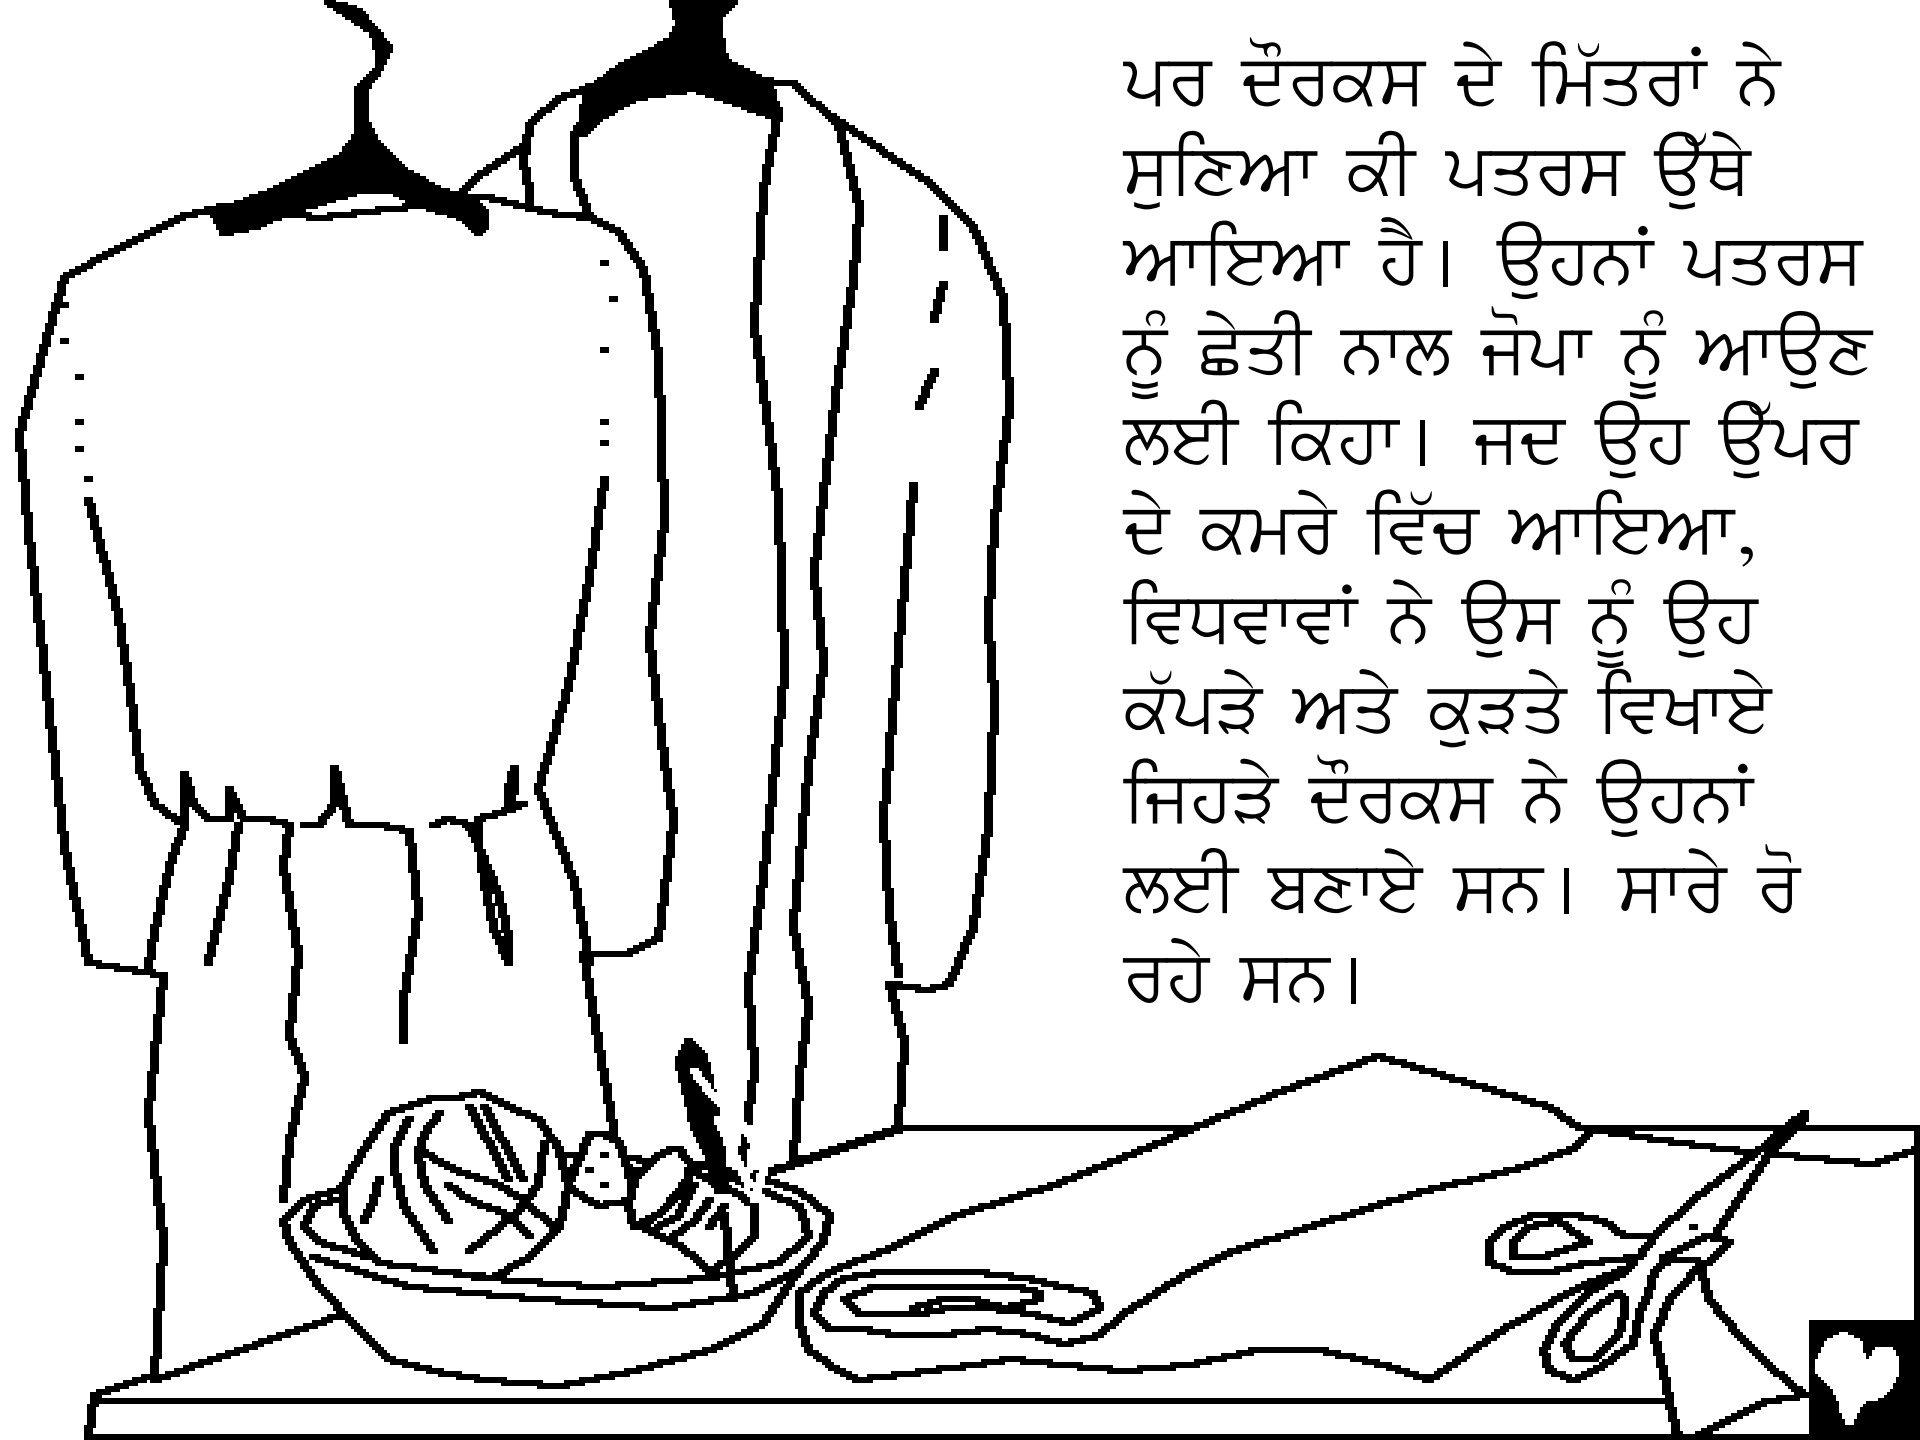 ਪਰ ਦੌਰਕਸ ਦੇ ਮਿੱਤਰਾਂ ਨੇ
ਸੁਣਿਆ ਕੀ ਪਤਰਸ ਉੱਥੇ
ਆਇਆ ਹੈ। ਉਹਨਾਂ ਪਤਰਸ
ਨੂੰ ਛੇਤੀ ਨਾਲ ਜੋਪਾ ਨੂੰ ਆਉਣ
ਲਈ ਕਿਹਾ। ਜਦ ਉਹ ਉੱਪਰ
ਦੇ ਕਮਰੇ ਵਿੱਚ ਆਇਆ,
ਵਿਧਵਾਵਾਂ ਨੇ ਉਸ ਨੂੰ ਉਹ
ਕੱਪੜੇ ਅਤੇ ਕੁੜਤੇ ਵਿਖਾਏ
ਜਿਹੜੇ ਦੌਰਕਸ ਨੇ ਉਹਨਾਂ
ਲਈ ਬਣਾਏ ਸਨ। ਸਾਰੇ ਰੋ
ਰਹੇ ਸਨ।